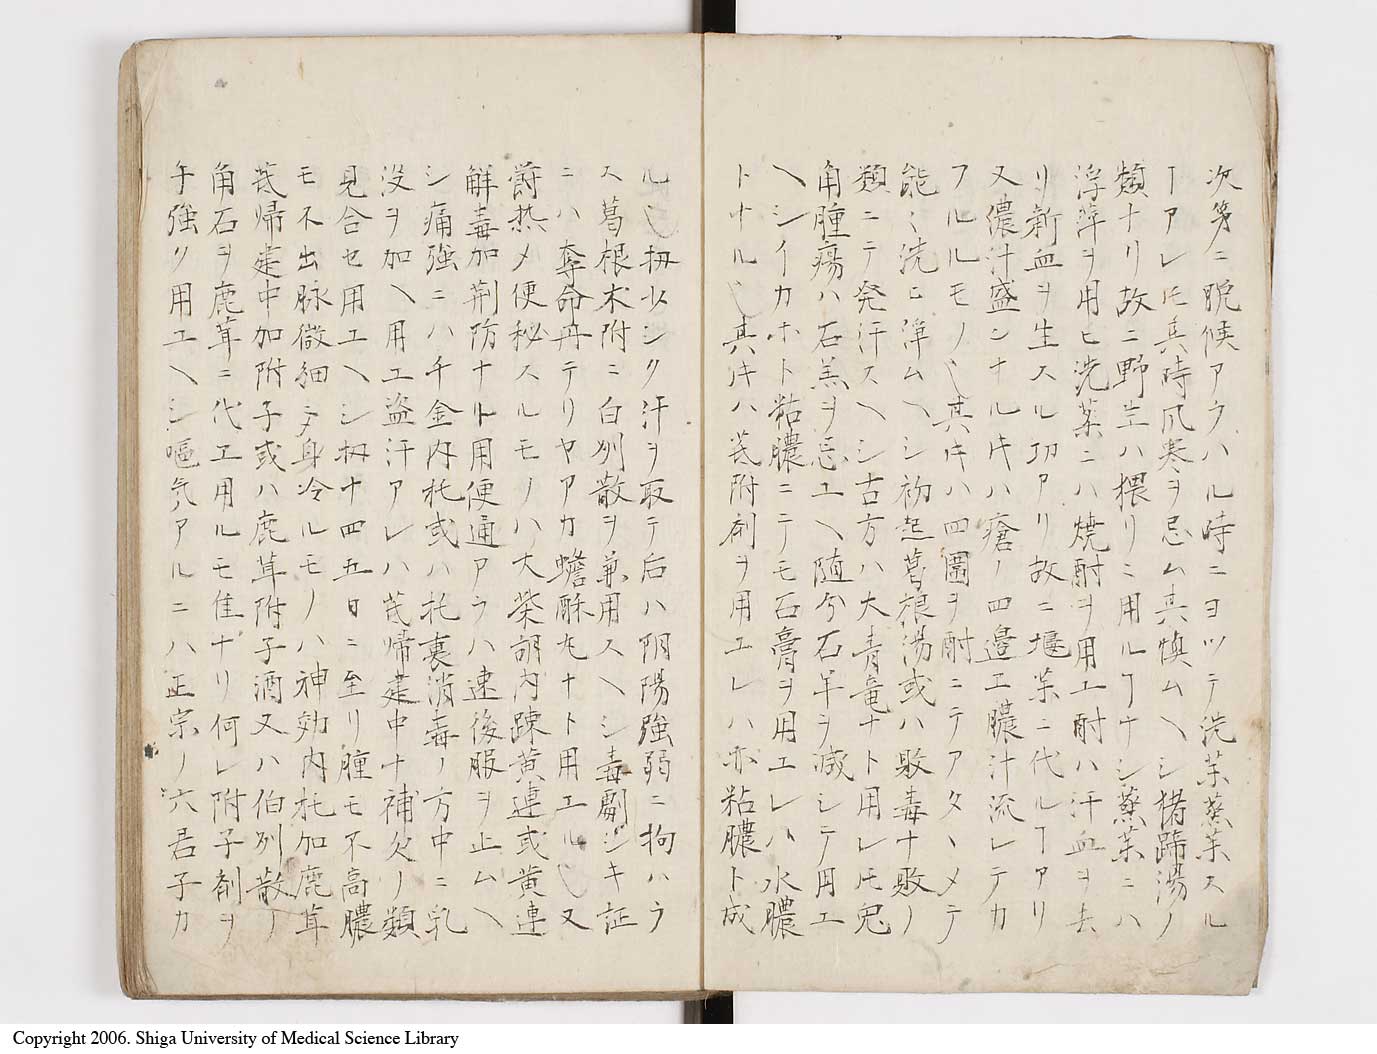 次第ニ脱候アラハル時ニヨツテ洗茱蒸茱スル
ヿアレ𪜈其時風寒ヲ忌ム其煥ムヘシ猪蹄湯ノ
類ナリ故ニ野生ハ猥リニ用ルヿナシ蒸茱ニハ
浮萍ヲ用ヒ洗茱ニハ焼酎ヲ用エ酎ハ汗血ヲ去
リ新血ヲ生スル功アリ故ニ塭茱ニ代ルヿアリ
又濃汁盛ンナル𪜈ハ瘡ノ四邊エ膿汁流レテカ
フルルモノ也其𪜈ハ四圍ヲ酎ニテアタヽメテ
能々洗ヒ浄ムヘシ初起葛根湯或ハ敗毒十敗ノ
類ニテ発汗スヘシ古方ハ大青竜ナト用レ𪜈兎
角腫瘍ハ石羔ヲ忌エヘ随分石羊ヲ減シテ用エ
ヘシイカホト粘膿ニテモ石膏ヲ用エレハ水膿
トナル也其𪜈ハ芪附剤ヲ用エレハ亦粘膿ト成
ル也扨少シク汗ヲ取テ后ハ阴陽強弱ニ拘ハラ
ス葛根朮附ニ白州散ヲ兼用スヘシ毒劇シキ証
ニハ奪命丹テリヤアカ蟾酥丸ナト用エル也又
欝热メ便秘スルモノハ大柴胡内踈黄連或黄連
解毒加荆防ナト用便通アラハ速後服ヲ止ムヘ
シ痛強ニハ千金内托或ハ托裏消毒ノ方中ニ乳
没ヲ加ヘ用エ盗汗アレハ芪帰建中十補欠ノ類
見合セ用エヘシ扨十四五日ニ至リ腫モ不高膿
モ不出脉微細ニメ身冷ルモノハ神効内托加鹿茸
芪帰建中加附子或ハ鹿茸附子酒又ハ伯州散ノ
角石ヲ鹿茸ニ代エ用ルモ佳ナリ何レ附子剤ヲ
午強ク用エヘシ嘔気アルニハ正宗ノ六君子カ
Copyright 2006. Shiga University of Medical Science Library